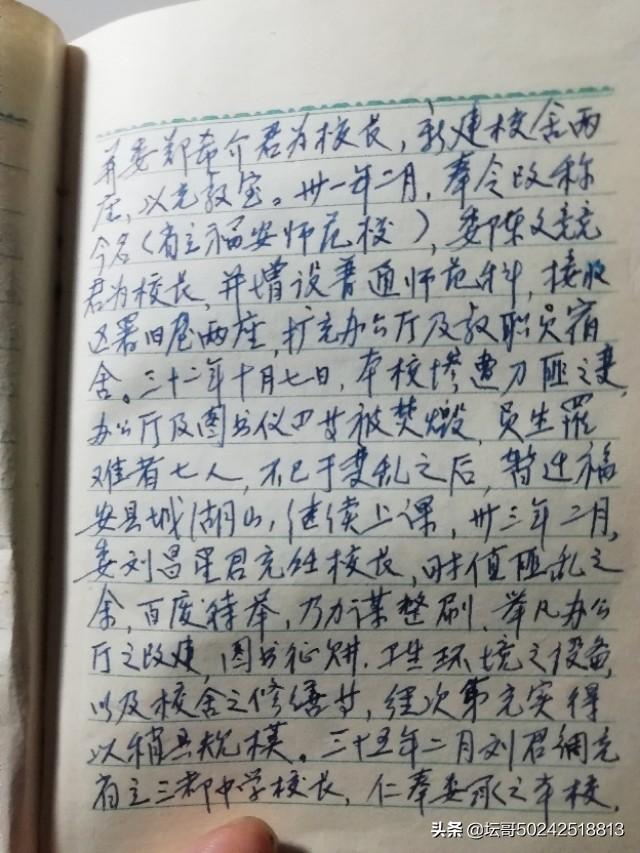 并委郑希介君为校长，新建校舍两
座，以充教室。卅一年二月，奉令改称
今名（省立福安师范校），委陈文竞
君为校长，并增设普通师范科，接收
区署旧屋两座，扩充办公厅及教职员宿
舍。三十二年十月七日，本校惨遭刀匪之变，
办公厅及图书仪四廿被焚燬，员生罹
难者七人，不已于变乱之后，暂迁福
安县城湖山，继续上课，卅三年二月，
委刘昌星君充任校长，时值匪乱之
余，百废待举，乃力谋整刷，举凡办公
厅之改建，图书征购，卫生环境之设备，
以及校舍之修缮廿，经次第充实得
以稍具规模。三十五年二月刘君调充
省立三都中学校长，仁奉委承之本校，
头条 @坛哥50242518813